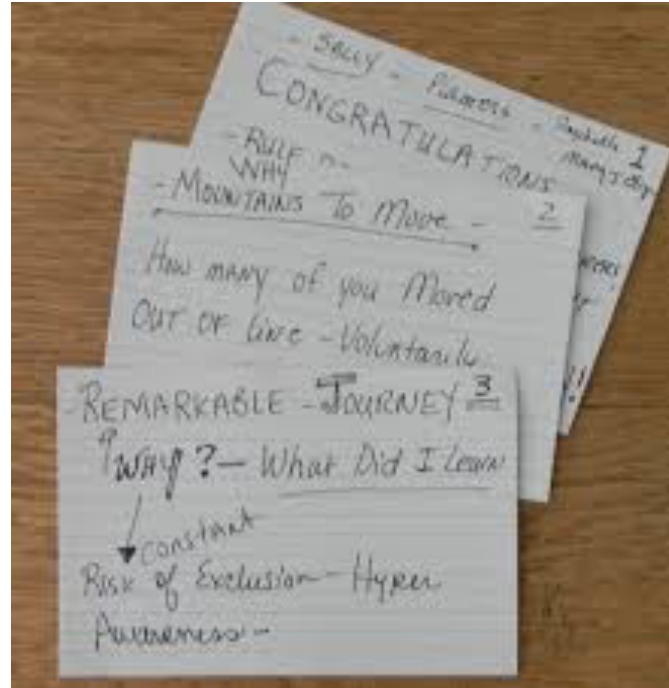 - SALLY - 1
CONGRATULATIONS
- RULF n-
WHY
- MOUNTAINS To Move - 2
How many of you Moved
OUT OF Line - Voluntarily
REMARKABLE - JOURNEY 3
WHY? - What Did I Learn
constant
Risk of Exclusion - Hyper
Awareness -